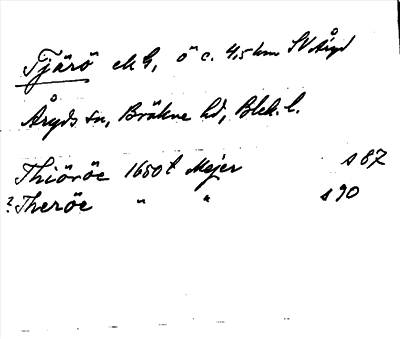 Tjärö ek G, ö c. 4,5 km SV Åryd
Åryds sn, Bräkne hd, Blek. l.
Thiöröe 1650 t Mejer s 87
? Theröe " " s 90